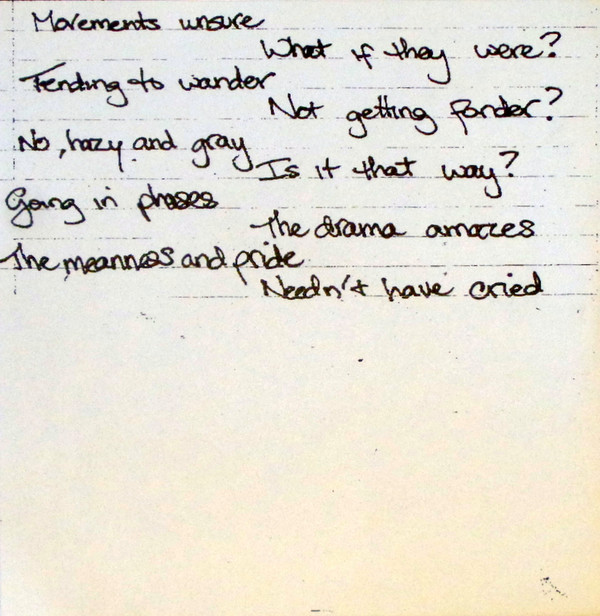 Movements unsure
What if they were?
Tending to wander
Not getting fonder?
No, hazy and gray
Is it that way?
Going in phases
The drama amazes
The meanness and pride
Needn't have cried